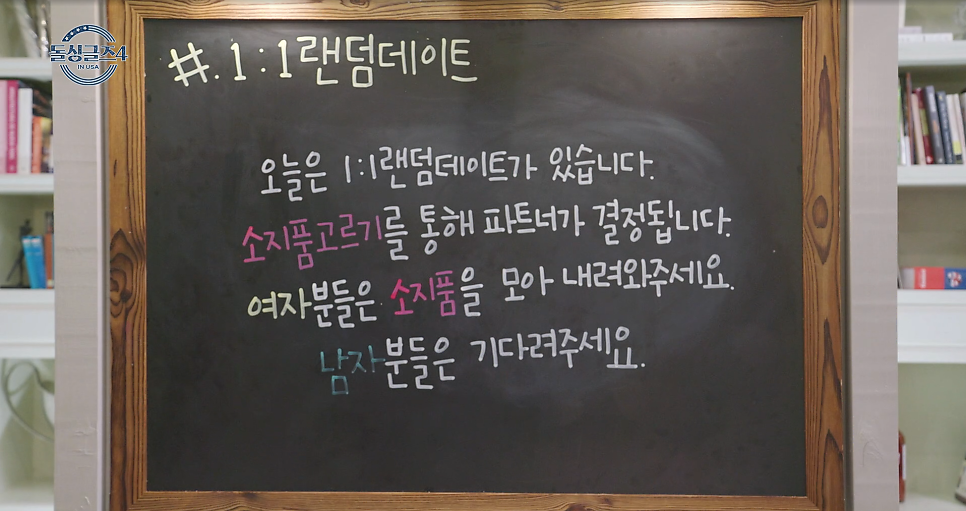 돌싱글즈4
IN USA
#. 1:1랜덤데이트
오늘은 1:1랜덤데이트가 있습니다.
소지품고르기를 통해 파트너가 결정됩니다.
여자분들은 소지품을 모아 내려와주세요.
남자분들은 기다려주세요.